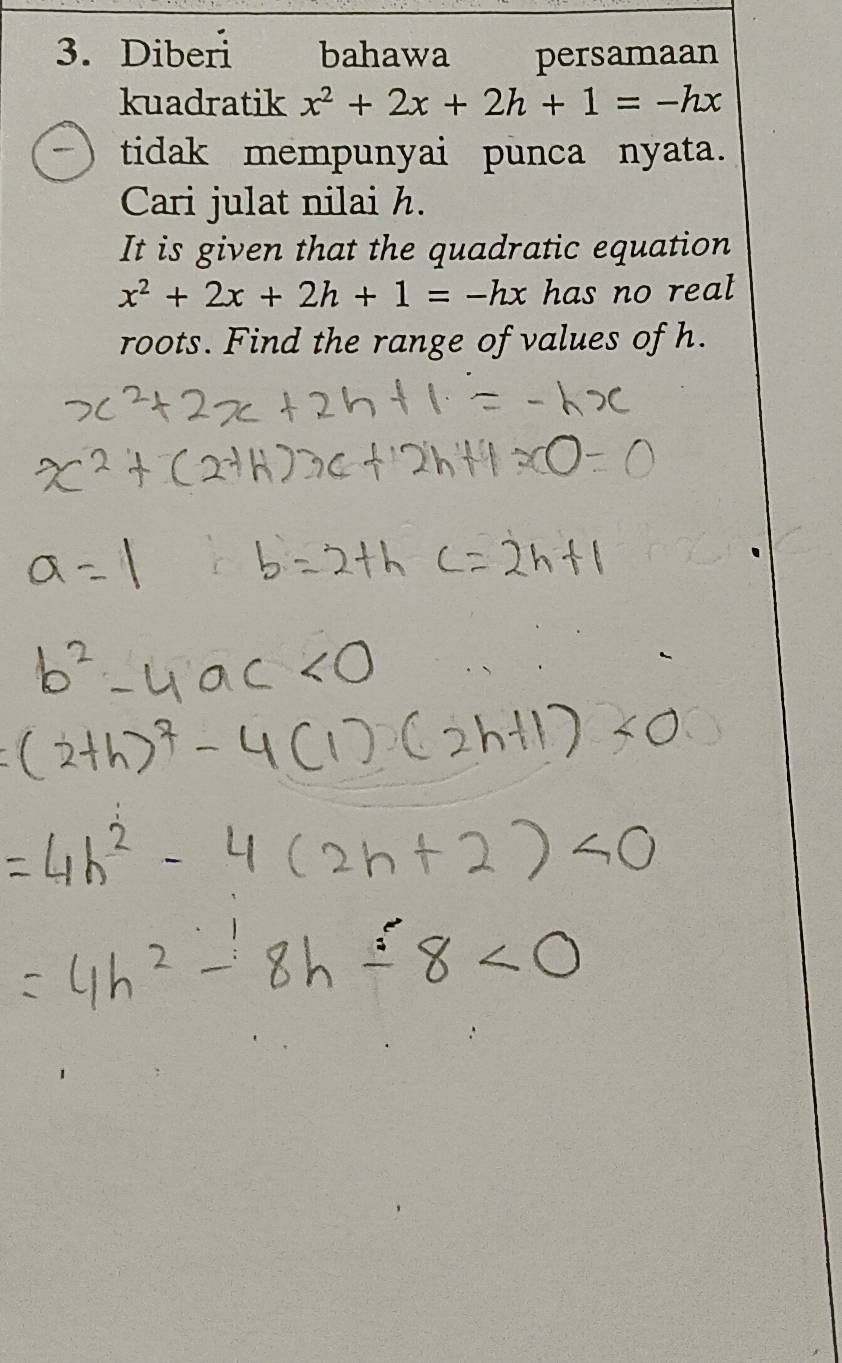 3. Diberi bahawa persamaan
kuadratik x² + 2x + 2h + 1 = −hx
− tidak mempunyai punca nyata.
Cari julat nilai h.
It is given that the quadratic equation
x² + 2x + 2h + 1 = −hx has no real
roots. Find the range of values of h.
x² + 2x + 2h + 1 = -hx
x² + (2+h)x + 2h+1 = 0
a = 1 b = 2+h c = 2h+1
b² - 4ac < 0
= (2+h)² - 4(1)(2h+1) < 0
= 4h² - 4(2h+2) < 0
= 4h² - 8h - 8 < 0